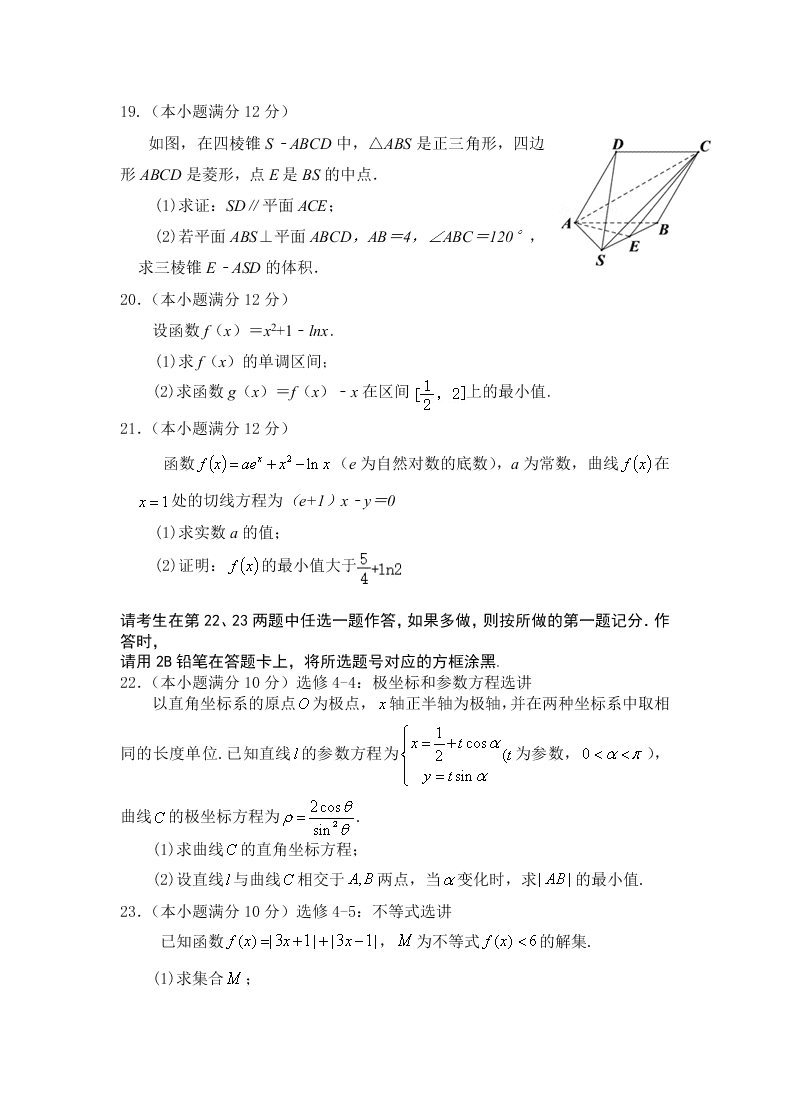 19.（本小题满分 12 分）
如图，在四棱锥 S﹣ABCD 中，△ABS 是正三角形，四边
形 ABCD 是菱形，点 E 是 BS 的中点．
(1)求证：SD∥平面 ACE；
(2)若平面 ABS⊥平面 ABCD，AB＝4，∠ABC＝120°，
求三棱锥 E﹣ASD 的体积．
D
C
A
B
E
S
20.（本小题满分 12 分）
设函数 f（x）＝x²+1﹣lnx．
(1)求 f（x）的单调区间；
(2)求函数 g（x）＝f（x）﹣x 在区间 [1/2，2]上的最小值．
21.（本小题满分 12 分）
函数 f(x)=ae^x+x²−ln x（e 为自然对数的底数），a 为常数，曲线 f(x) 在
x=1 处的切线方程为（e+1）x﹣y＝0
(1)求实数 a 的值；
(2)证明：f(x) 的最小值大于 5/4+ln2
请考生在第 22、23 两题中任选一题作答，如果多做，则按所做的第一题记分．作
答时，
请用 2B 铅笔在答题卡上，将所选题号对应的方框涂黑．
22.（本小题满分 10 分）选修 4-4：极坐标和参数方程选讲
以直角坐标系的原点 O 为极点，x 轴正半轴为极轴，并在两种坐标系中取相
同的长度单位．已知直线 l 的参数方程为 {x=1/2+t cosα, y=t sinα (t 为参数，0<α<π），
曲线 C 的极坐标方程为 ρ=2cosθ/sin²θ．
(1)求曲线 C 的直角坐标方程；
(2)设直线 l 与曲线 C 相交于 A,B 两点，当 α 变化时，求|AB|的最小值．
23.（本小题满分 10 分）选修 4-5：不等式选讲
已知函数 f(x)=|3x+1|+|3x−1|，M 为不等式 f(x)<6 的解集．
(1)求集合 M；